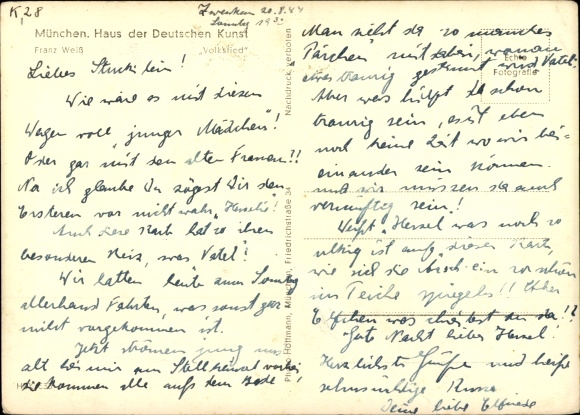 K, 28
Zwenkau 20.8.44
Sonntag 19 30
München. Haus der Deutschen Kunst
Franz Weiß „Volkslied“
Liebes
Wie wäre es mit diesem
Wagen voll junger Mädchen"!
Oder gar mit den alten Frauen!!
Na ich glaube Du zögest Dir den
Ersteren vor nicht wahr „Hersel"!
Auch diese Karte hat so ihren
besonderen Reiz, was Vatel?
Wir hatten heute am Sonntag
allerhand Fahrten, was sonst gar
nicht vorgekommen ist.
Jetzt strömen jung und
alt bei mir am vorbei,
sie kommen alle aus dem Bade!
Nachdruck verboten
Photo Hoffmann, München, Friedrichstraße 34
Echte
Fotografie
Man sieht da so manches
Pärchen
etwas traurig gestimmt wird Vatel.
Aber was hilfft da schon
traurig sein, es ist eben
noch keine Zeit wo wir bei-
einander sein können.
und wir müssen da auch
vernünftig sein!
Weißt „Hersel was noch so
ulkig ist auf dieser Karte,
wie sich die so schön
im Teiche spiegeln!!
Elfchen was schreibst Du da!?
Gute Nacht lieber Hersel!
Herzlichste Grüße und heiße
sehnsüchtige Küsse
Deine liebe Elfriede